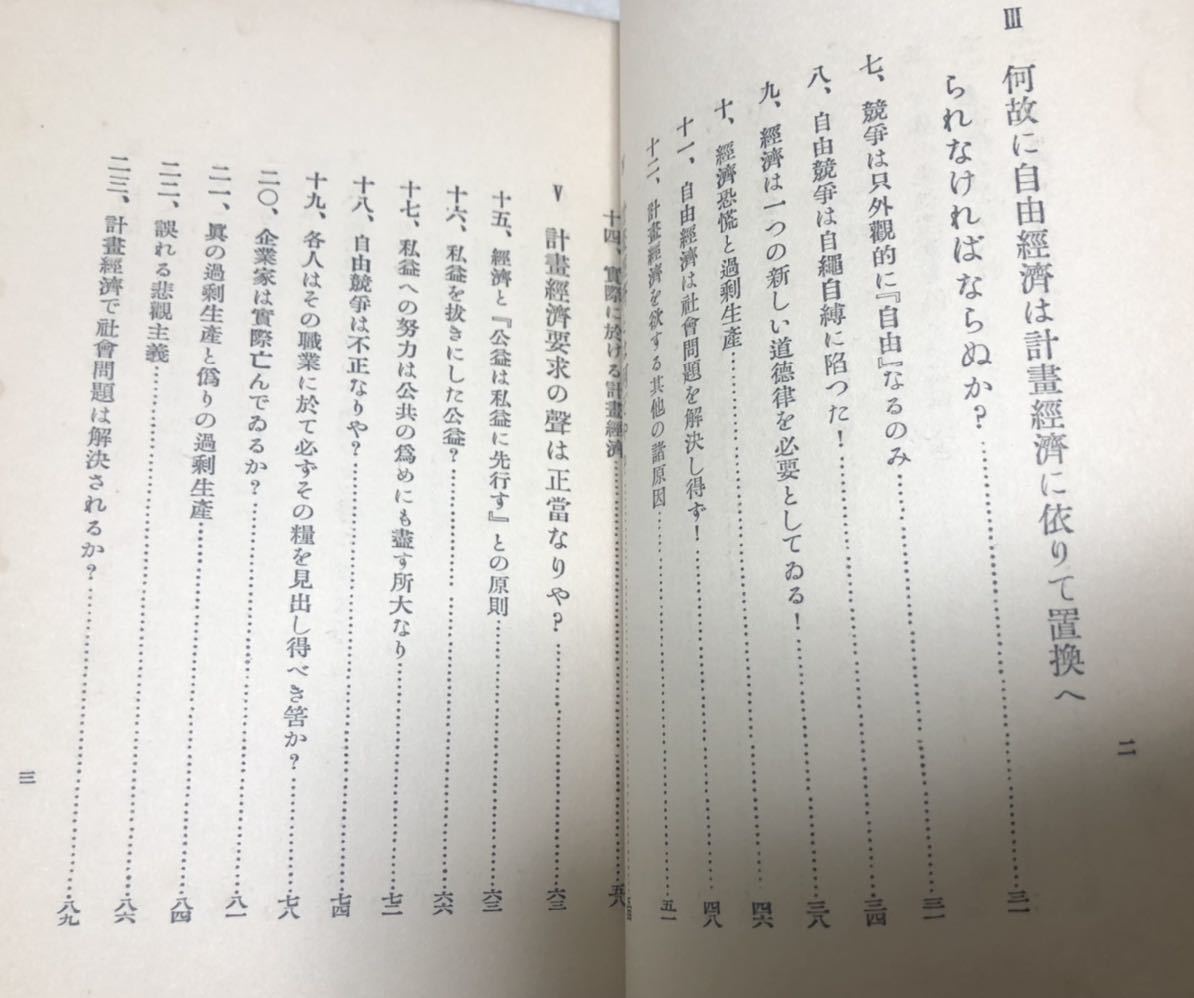 III 何故に自由經濟は計畫經濟に依りて置換へ
られなければならぬか?…………三一
七、競爭は只外觀的に『自由』なるのみ…………三一
八、自由競爭は自繩自縛に陷つた!…………三四
九、經濟は一つの新しい道德律を必要としてゐる!…………三八
十、經濟恐慌と過剩生產…………四六
十一、自由經濟は社會問題を解決し得ず!…………四八
十二、計畫經濟を欲する其他の諸原因…………五一
二
十四、實際に於ける計畫經濟…………五八
V 計畫經濟要求の聲は正當なりや?…………六三
十五、經濟と『公益は私益に先行す』との原則…………六三
十六、私益を拔きにした公益?…………六六
十七、私益への努力は公共の爲めにも盡す所大なり…………七二
十八、自由競爭は不正なりや?…………七四
十九、各人はその職業に於て必ずその糧を見出し得べき筈か?…………七八
二〇、企業家は實際亡んでゐるか?…………八一
二一、眞の過剩生產と僞りの過剩生產…………八四
二二、誤れる悲觀主義…………八六
二三、計畫經濟で社會問題は解決されるか?…………八九
三